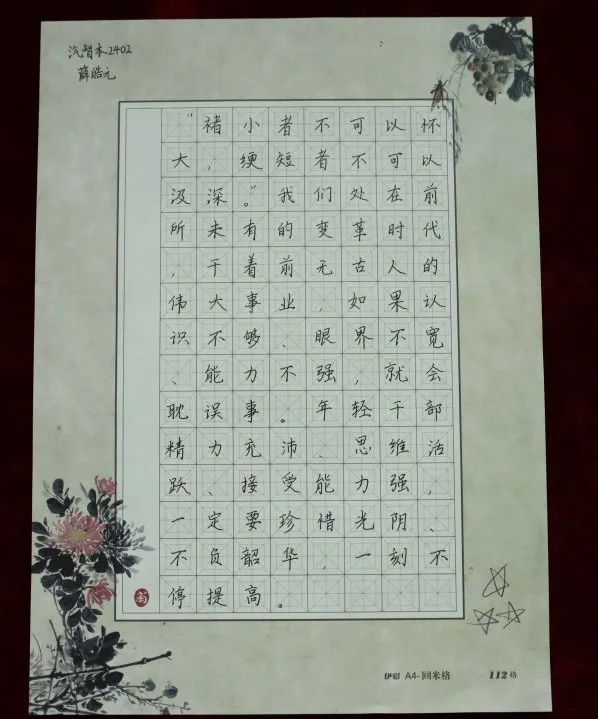 汽智本2402
薛皓元
“褚小者不可以怀
大，绠短者不可以
汲深。”我们处在前
所未有的变革时代
，干着前无古人的
伟大事业，如果认
识不够、眼界不宽
、能力不强，就会
耽误事。年轻干部
精力充沛、思维活
跃、接受能力强，
一定要珍惜光阴、
不负韶华，一刻不
停提高。
A4-回米格
112格